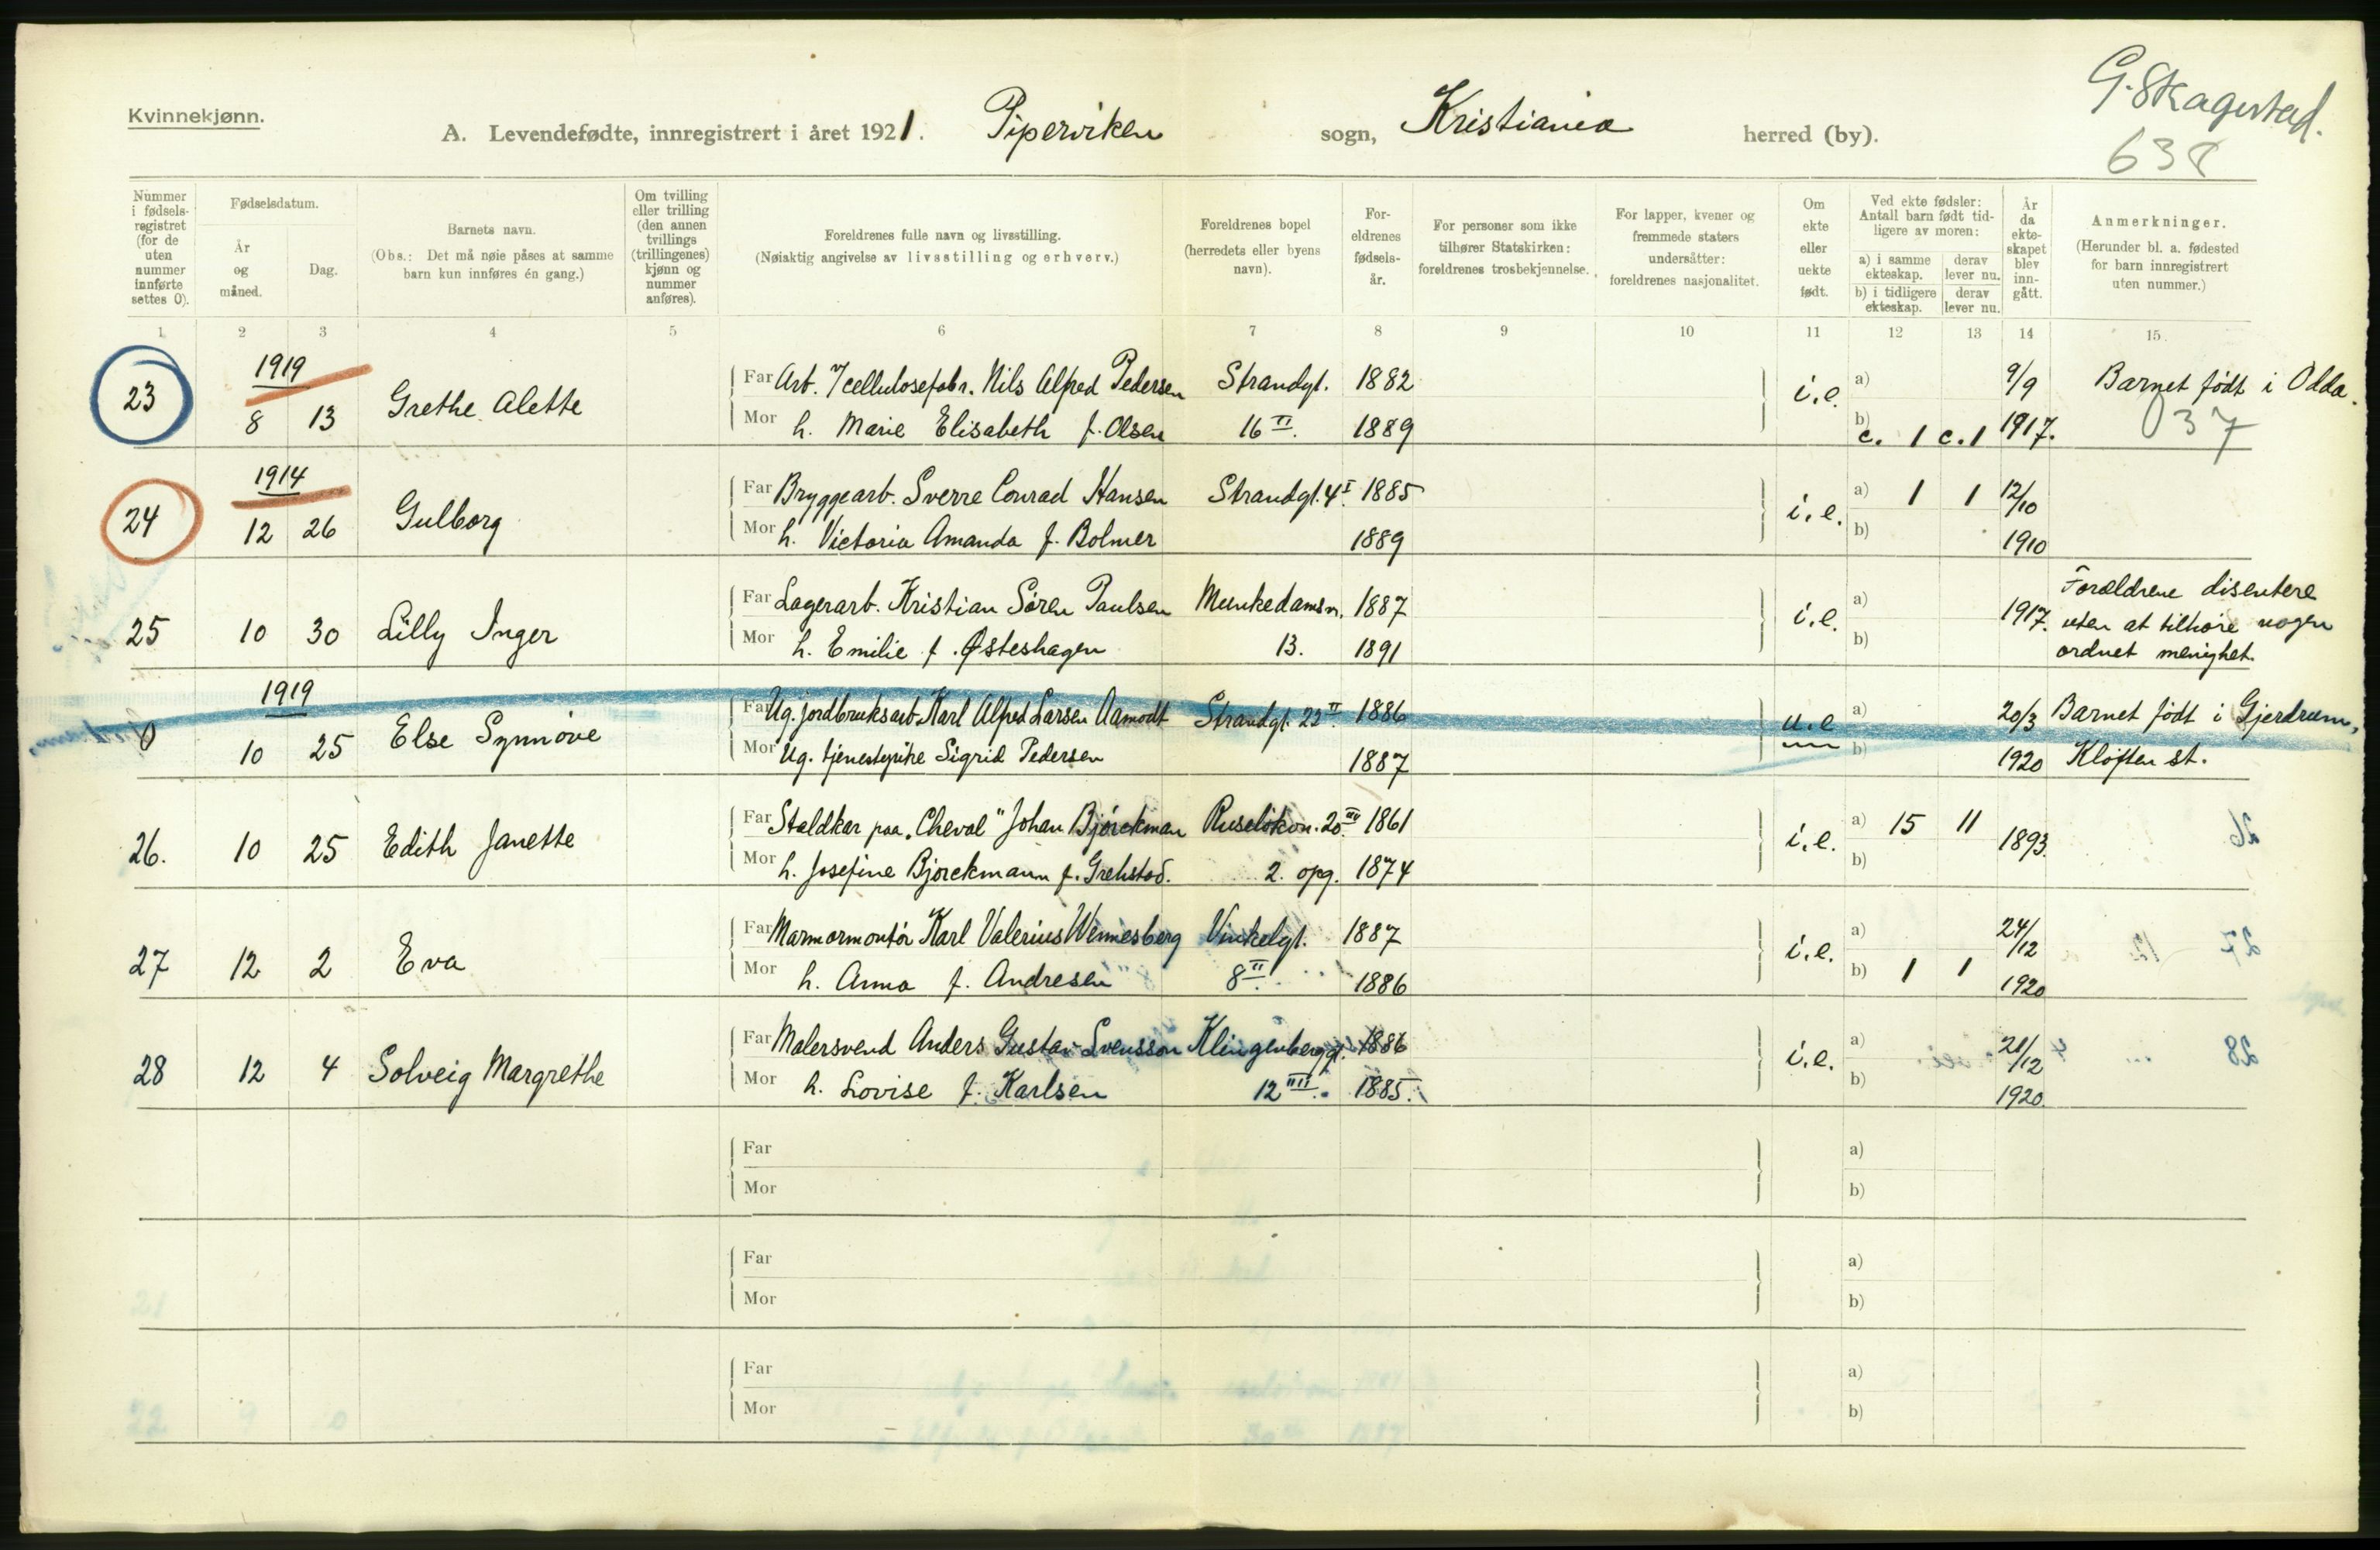 G. Skagestad.
638
Kvinnekjønn.
A. Levendefødte, innregistrert i året 1921. Piperviken sogn, Kristiania herred (by).
Nummer i fødsels-registret (for de uten nummer innførte settes 0).
Fødselsdatum.
År og måned.
Dag.
Barnets navn.
(Obs.: Det må nøie påses at samme barn kun innføres én gang.)
Om tvilling eller trilling (den annen tvillings (trillingenes) kjønn og nummer anføres).
Foreldrenes fulle navn og livsstilling.
(Nøiaktig angivelse av livsstilling og erhverv.)
Foreldrenes bopel (herredets eller byens navn).
For-eldrenes fødsels-år.
For personer som ikke tilhører Statskirken: foreldrenes trosbekjennelse.
For lapper, kvener og fremmede staters undersåtter: foreldrenes nasjonalitet.
Om ekte eller uekte født.
Ved ekte fødsler: Antall barn født tid-ligere av moren:
a) i samme ekteskap. derav lever nu.
b) i tidligere ekteskap. derav lever nu.
År da ekte-skapet blev inn-gått.
Anmerkninger.
(Herunder bl. a. fødested for barn innregistrert uten nummer.)
1 2 3 4 5 6 7 8 9 10 11 12 13 14 15
1919
23 8 13 Grethe Alette
Far Arb. v/cellulosefabr. Nils Alfred Pedersen Strandgt. 1882 i.e. a) 9/9 Barnet født i Odda.
Mor h. Marie Elisabeth f. Olsen 16 II. 1889 b) e. 1 e. 1 1917. 37
1914
24 12 26 Gulborg
Far Bryggearb. Sverre Conrad Hansen Strandgt. 4 I 1885 i.e. a) 1 1 12/10
Mor h. Victoria Amanda f. Bolmer 1889 b) 1910
25 10 30 Lilly Inger
Far Lagerarb. Kristian Sören Paulsen Munkedamsv. 1887 i.e. a) 1917. Forældrene disentere
Mor h. Emilie f. Østeshagen 13. 1891 b) uten at tilhøre nogen
ordnet menighet.
1919
0 10 25 Else Synnöve
Far Ug. jordbruksarb. Karl Alfred Larsen Aamodt Strandgt. 22 II. 1886 u.e a) 20/3 Barnet født i Gjerdrum,
Mor Ug. tjenestepike Sigrid Pedersen 1887 b) 1920 Kløften st.
26. 10 25 Edith Janette
Far Staldkar paa "Cheval" Johan Björckman Ruselökvn. 20 III 1861 i.e. a) 15 11 1893.
Mor h. Josefine Bjørckmann f. Grehstad. 2. opg. 1874 b)
27 12 2 Eva
Far Marmormontør Karl Valerius Wennesberg Vinkelgt. 1887 i.e. a) 24/12
Mor h. Anna f. Andresen 8 II. 1886 b) 1 1 1920
28 12 4 Solveig Margrethe
Far Malersvend Anders Gustav Svensson Klingenberggt. 1886 i.e. a) 21/12
Mor h. Lovise f. Karlsen 12 IIII. 1885. b) 1920.
Far a)
Mor b)
Far a)
Mor b)
Far a)
Mor b)